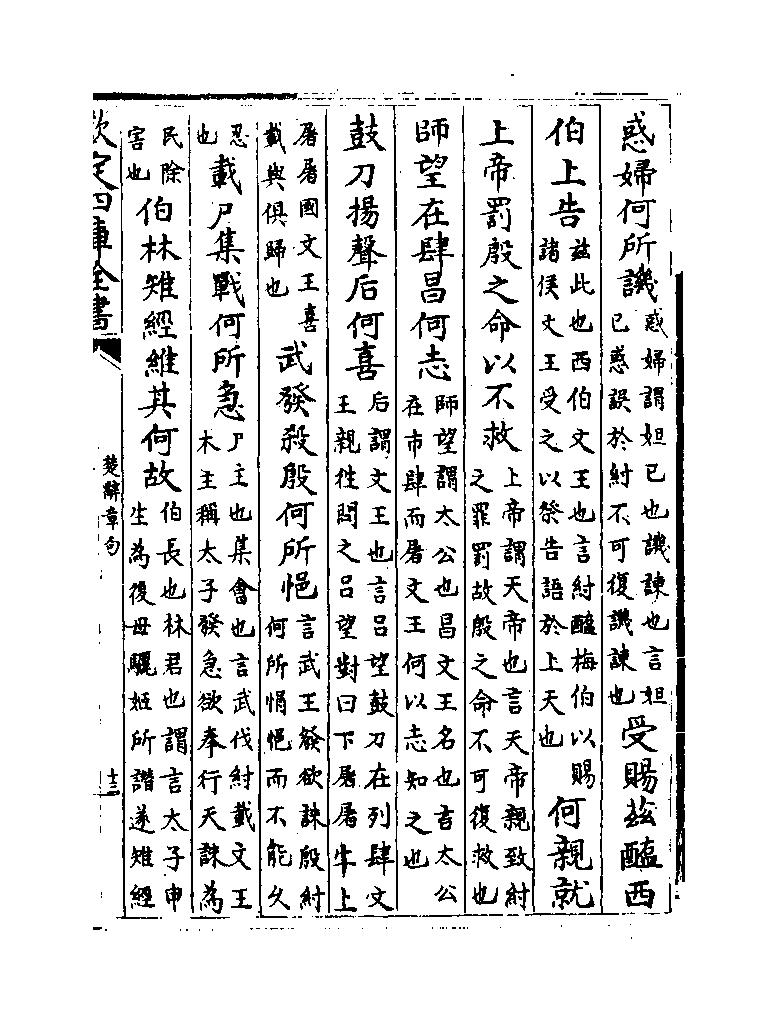 惑婦何所譏惑婦謂妲已也譏諫也言妲已惑誤於紂不可復譏諫也受賜兹醢西
伯上告兹此也西伯文王也言紂醢梅伯以賜諸侯文王受之以祭告語於上天也何親就
上帝罰殷之命以不救上帝謂天帝也言天帝親致紂之罪罰故殷之命不可復救也
師望在肆昌何志師望謂太公也昌文王名也言太公在市肆而屠文王何以志知之也
鼓刀揚聲后何喜后謂文王也言吕望鼓刀在列肆文王親往問之吕望對曰下屠屠牛上
屠屠國文王喜載與俱歸也武發殺殷何所悒言武王發欲誅殷紂何所悁悒而不能久
忍也載尸集戰何所急尸主也集會也言武伐紂載文王木主稱太子發急欲奉行天誅為
民除害也伯林雉經維其何故伯長也林君也謂言太子申生為後母驪姬所譖遂雉經
欽定四庫全書
楚辭章句
十三